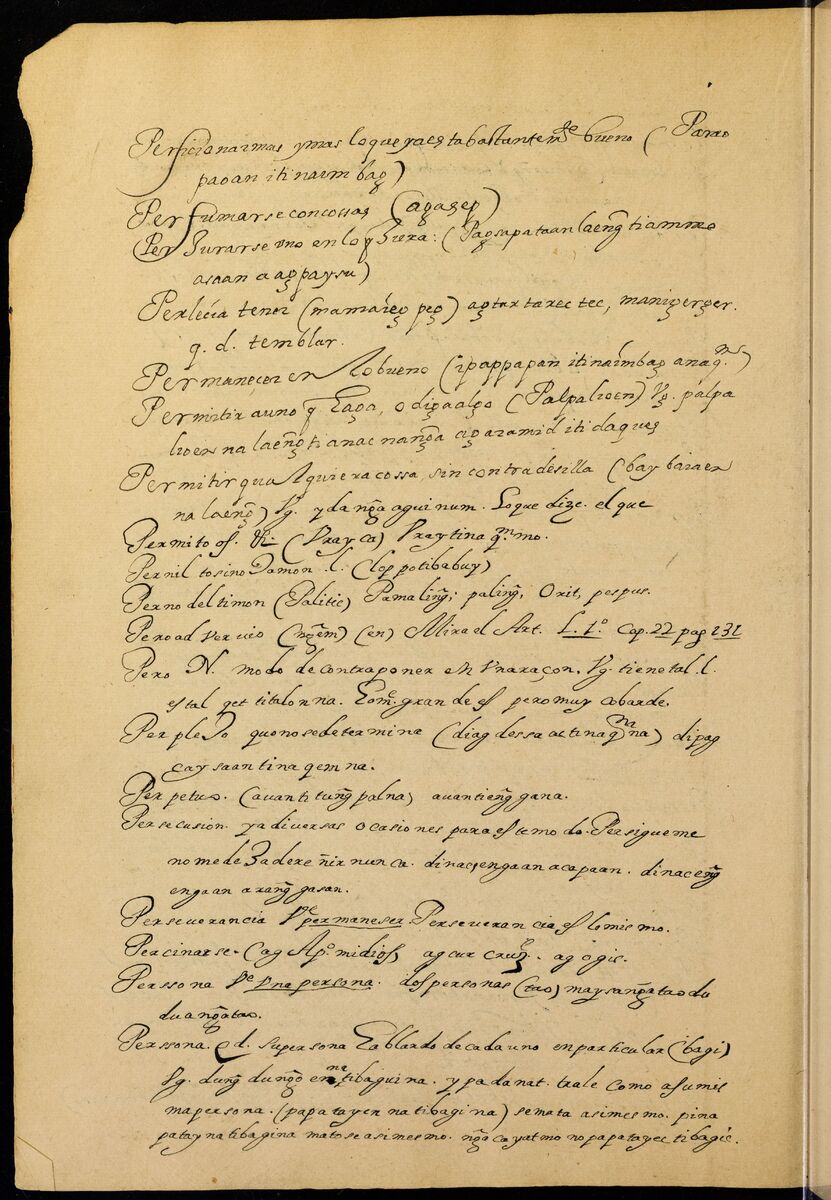 Perficionar mas y mas lo que ya esta bastantemte bueno (Parao
paoan iti naimbag)
Perfumarse con cossas (agasep)
Per Jurarse uno en lo q Jura: (Pagsapataan laeng̃ ti ammo
asaan a agpaysu)
Perlecia tener (mamáieg peg) agtartarectec, manigerger.
q. d. temblar.
Permaneçer en lo bueno (ipappapan iti naimbag a naqm)
Permitir a uno q haga, o diga algo (Palpalioen) Vg. pálpa
lioen na laeng̃ ti anac nang̃a agaramid iti dagues
Permitir qualquiera cossa, sin contradesilla (baybaiaen
na laeng̃) Vg. yda ng̃a aguinum. Lo que dize. el que
Permito os. (Vrayca) Vraytina qm mo.
Pernil tosino Jamon .l. (loppo ti babuy)
Perno del timon (Palitic) Pamaling̃; paling̃, Orit, pespes.
Pero adVervio (ng̃em) (en) Mira el Art. L. 1.º Cap. 22 pag 131
Pero N. modo de contraponer en Vna raçon. Vg. tiene tal .l.
es tal qet titalonna. home gran de es pero muy cobarde.
PerpleJo que no se determina (diagdessaac tinaqmna) dipag
caysaan tinaqemna.
Perpetuo. (auan ti tung̃palna) auan tieng̃gana.
Persecusion. ya diversas ocasiones para este modo. Persigueme
no me deJa de reñir nunca. dinac engaan a capaan. dinac eng̃
engaan a rang̃gasan.
Perseverancia Ve permaneser Perseverancia es lo mismo.
Percinarse. (ag Apo. midios, agcurcruz̃. agogis.
Perssona Ve Vna persona. dos personas (tao) maysang̃a tao du
duang̃a tao.
Perssona. q.d. su persona hablardo de cada uno en particular (bagi)
Vg. dung̃dung̃oenna ti baguina. y padanat. trale como a su mis
ma persona. (papatayenna ti bagina) se mata asimesmo. pina
patayna ti bagina matose asimesmo. ng̃a cayatmo no papatayec ti bagic.